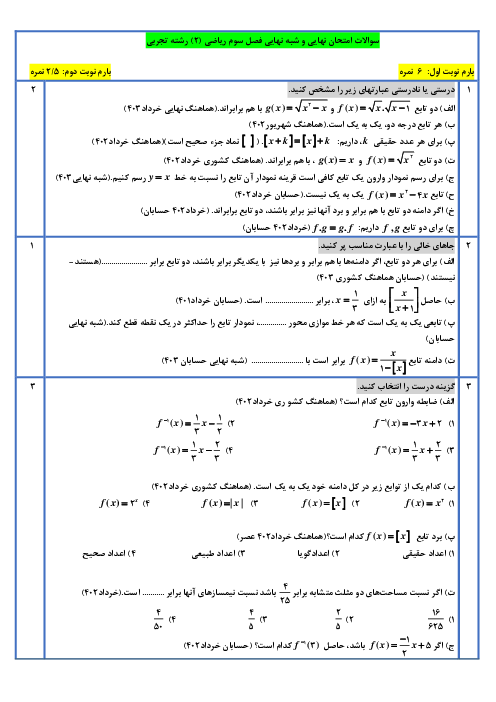 سوالات امتحان نهایی و شبه نهایی فصل سوم ریاضی (۲) رشته تجربی
بارم نوبت اول: ۶ نمره
بارم نوبت دوم: ۲/۵ نمره
۱
درستی یا نادرستی عبارتهای زیر را مشخص کنید.
۲
الف) دو تابع f(x)=√x.√x−۱ و g(x)=√x^۲−x با هم برابراند.(هماهنگ نهایی خرداد۴۰۳)
ب) هر تابع درجه دو، یک به یک است.(هماهنگ شهریور۴۰۲)
پ) برای هر عدد حقیقی k، داریم: [x+k]=[x]+k. ( [ ] نماد جزء صحیح است)(هماهنگ خرداد۴۰۲)
ت) دو تابع f(x)=√x^۲ و g(x)=x، با هم برابراند. (هماهنگ کشوری خرداد۴۰۲)
ج) برای رسم نمودار وارون یک تابع کافی است قرینه نمودار آن تابع را نسبت به خط y=x رسم کنیم.(شبه نهایی۴۰۳)
ح) تابع f(x)=x^۲−۴x یک به یک نیست.(حسابان خرداد۴۰۲)
خ) اگر دامنه دو تابع با هم برابر و برد آنها نیز برابر باشند، دو تابع برابراند. (خرداد۴۰۲ حسابان)
چ) برای دو تابع f,g داریم: f.g=g.f (خرداد۴۰۲ حسابان)
۲
جاهای خالی را با عبارت مناسب پر کنید.
۱
الف) برای هر دو تابع، اگر دامنه‌ها با هم برابر و بردها نیز با یکدیگر برابر باشند، دو تابع برابر ......................(هستند –
نیستند) (حسابان هماهنگ کشوری ۴۰۳)
ب) حاصل [x/(x+۱)] به ازای x=۱/۳، برابر ...................... است. (حسابان خرداد۴۰۱)
پ) تابعی یک به یک است که هر خط موازی محور ..............، نمودار تابع را حداکثر در یک نقطه قطع کند.(شبه نهایی
حسابان)
ت) دامنه تابع f(x)=x/(۱−[x]) برابر است با ........................ (شبه نهایی حسابان ۴۰۳)
۳
گزینه درست را انتخاب کنید.
۳
الف) ضابطه وارون تابع کدام است؟ (هماهنگ کشو ری خرداد۴۰۲)
۱) f^−۱(x)=−۳x+۲ ۲) f^−۱(x)=۱/۳x−۱/۲
۳) f^−۱(x)=۱/۳x+۲/۳ ۴) f^−۱(x)=۱/۳x−۲/۳
ب) کدام یک از توابع زیر در کل دامنه خود یک به یک است. (هماهنگ کشوری خرداد۴۰۲)
۱) f(x)=x^۲ ۲) f(x)=[x] ۳) f(x)=|x| ۴) f(x)=۲^x
پ) برد تابع f(x)=[x] کدام است؟(هماهنگ خرداد۴۰۲ عصر)
۱) اعداد حقیقی ۲) اعدادگویا ۳) اعداد طبیعی ۴) اعداد صحیح
ت) اگر نسبت مساحت‌های دو مثلث متشابه برابر ۴/۲۵ باشد نسبت نیمسازهای آنها برابر ........... است.(خرداد۴۰۲)
۱) ۱۶/۶۲۵ ۲) ۲/۵ ۳) ۴/۵ ۴) ۴/۵۰
ج) اگر f(x)=−۱/۲x+۵ باشد، حاصل f^−۱(۳) کدام است؟ (حسابان خرداد۴۰۲)